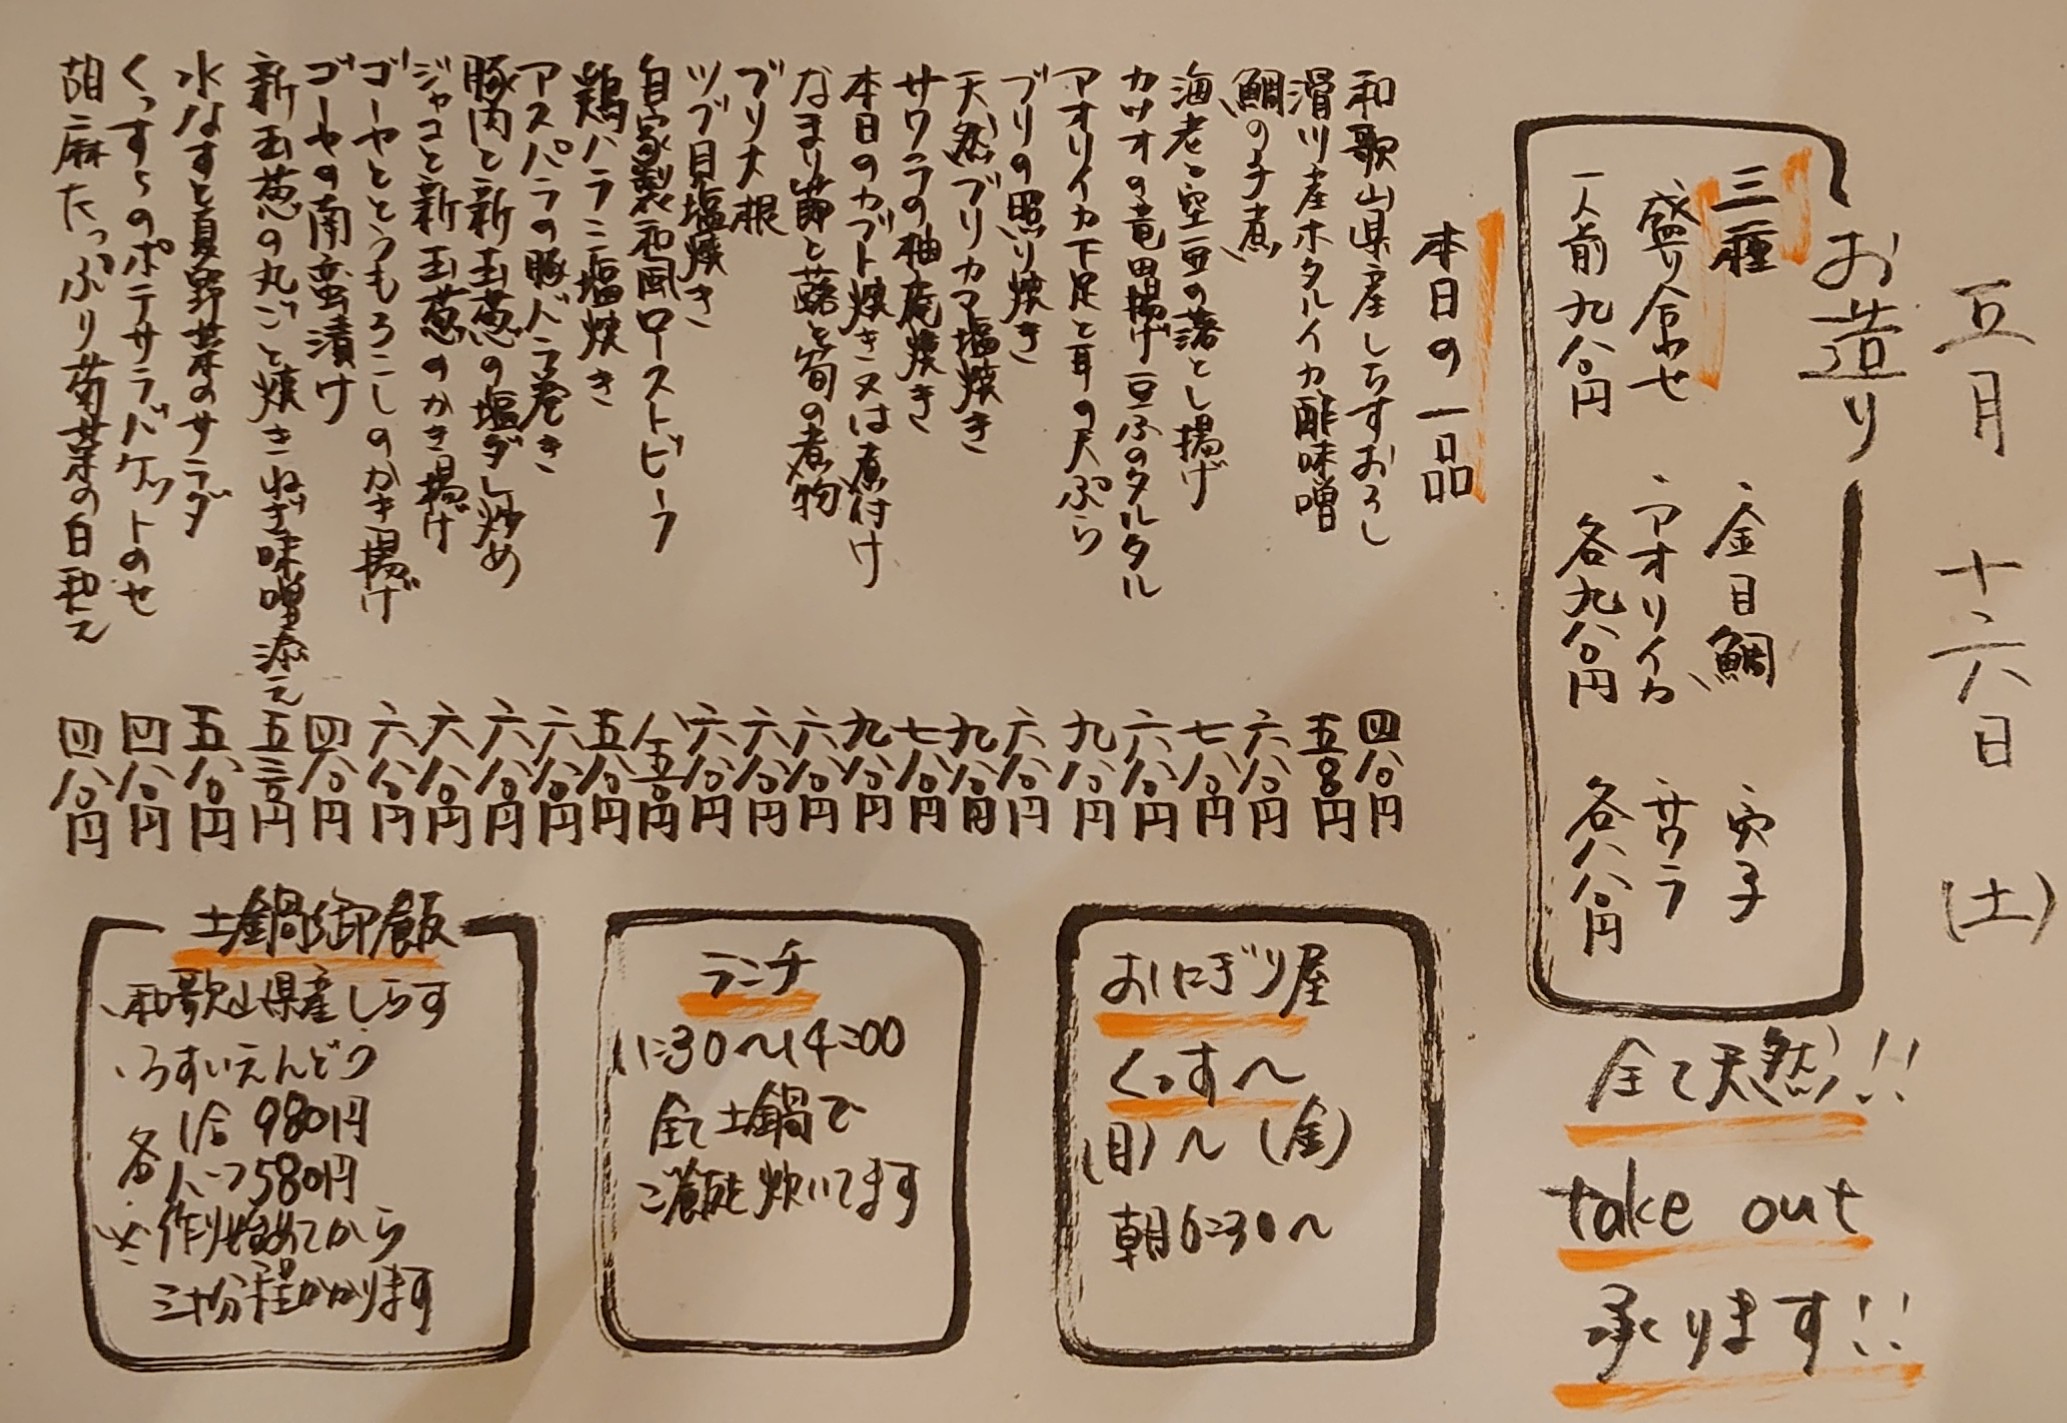 五月 十六日 (土)
お造り
三種
盛り合わせ
一人前九八〇円
、金目鯛
、アオリイカ
各九八〇円
穴子
サワラ
各八八〇円
本日の一品
和歌山県産しらすおろし 四八〇円
滑川産ホタルイカ酢味噌 五八〇円
鯛の子煮 六八〇円
海老と空豆の落とし揚げ 七八〇円
カツオの竜田揚げ豆ふのタルタル 六八〇円
アオリイカ下足と耳の天ぷら 九八〇円
ブリの照り焼き 六八〇円
天然ブリカマ塩焼き 九八〇円
サワラの柚庵焼き 七八〇円
本日のカブト焼き又は煮付け 九八〇円
なまり節と蕗と筍の煮物 六八〇円
ブリ大根 六八〇円
ツブ貝塩焼き 六八〇円
自家製和風ローストビーフ 八五〇円
鶏ハラミ塩焼き 五八〇円
アスパラの豚バラ巻き 六八〇円
豚肉と新玉葱の塩ダレ炒め 六八〇円
ジャコと新玉葱のかき揚げ 六八〇円
ゴーヤととうもろこしのかき揚げ 六八〇円
ゴーヤの南蛮漬け 四八〇円
新玉葱の丸ごと焼きねぎ味噌添え 五三〇円
水なすと夏野菜のサラダ 五八〇円
くっすぅのポテサラバケットのせ 四八〇円
胡麻たっぷり菊菜の白和え 四八〇円
全て天然!!
take out
承ります!!
おにぎり屋
くっす〜
(日)〜(金)
朝6:30〜
ランチ
11:30〜14:00
全て土鍋で
ご飯を炊いてます
土鍋御飯
、和歌山県産しらす
、うすいえんどう
各 1合 980円
ハーフ 580円
※作り始めてから
三十分程かかります